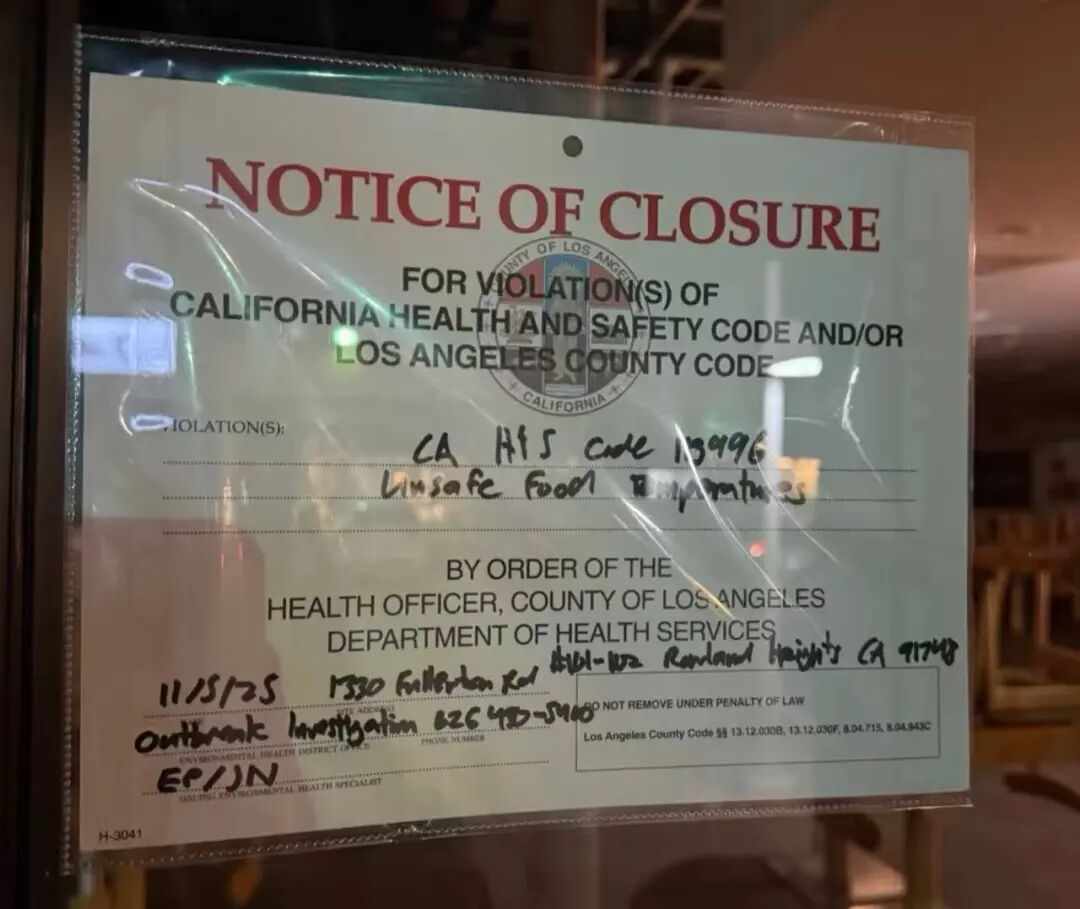 NOTICE OF CLOSURE
COUNTY OF LOS ANGELES
CALIFORNIA
FOR VIOLATION(S) OF
CALIFORNIA HEALTH AND SAFETY CODE AND/OR
LOS ANGELES COUNTY CODE
VIOLATION(S):
CA H&S Code 113996
Unsafe Food Temperatures
BY ORDER OF THE
HEALTH OFFICER, COUNTY OF LOS ANGELES
DEPARTMENT OF HEALTH SERVICES
11/5/25 1330 Fullerton Rd #101-102 Rowland Heights CA 91748
SITE ADDRESS
Outbreak Investigation 626 430-5400
ENVIRONMENTAL HEALTH DISTRICT OFFICE PHONE NUMBER
EP/JN
ISSUING ENVIRONMENTAL HEALTH SPECIALIST
DO NOT REMOVE UNDER PENALTY OF LAW
Los Angeles County Code §§ 13.12.030B, 13.12.030F, 8.04.715, 8.04.943C
H-3041